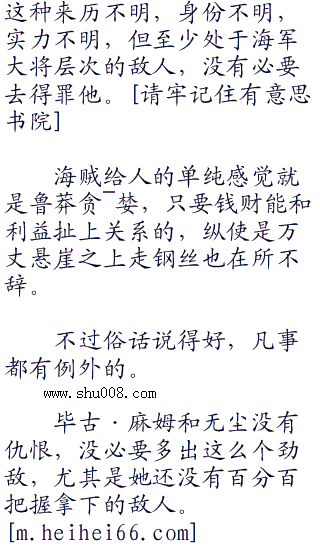 这种来历不明，身份不明，
实力不明，但至少处于海军
大将层次的敌人，没有必要
去得罪他。[请牢记住有意思
书院]
海贼给人的单纯感觉就
是鲁莽贪¯婪，只要钱财能和
利益扯上关系的，纵使是万
丈悬崖之上走钢丝也在所不
辞。
不过俗话说得好，凡事
都有例外的。
www.shu008.com
毕古·麻姆和无尘没有
仇恨，没必要多出这么个劲
敌，尤其是她还没有百分百
把握拿下的敌人。
[m.heihei66.com]